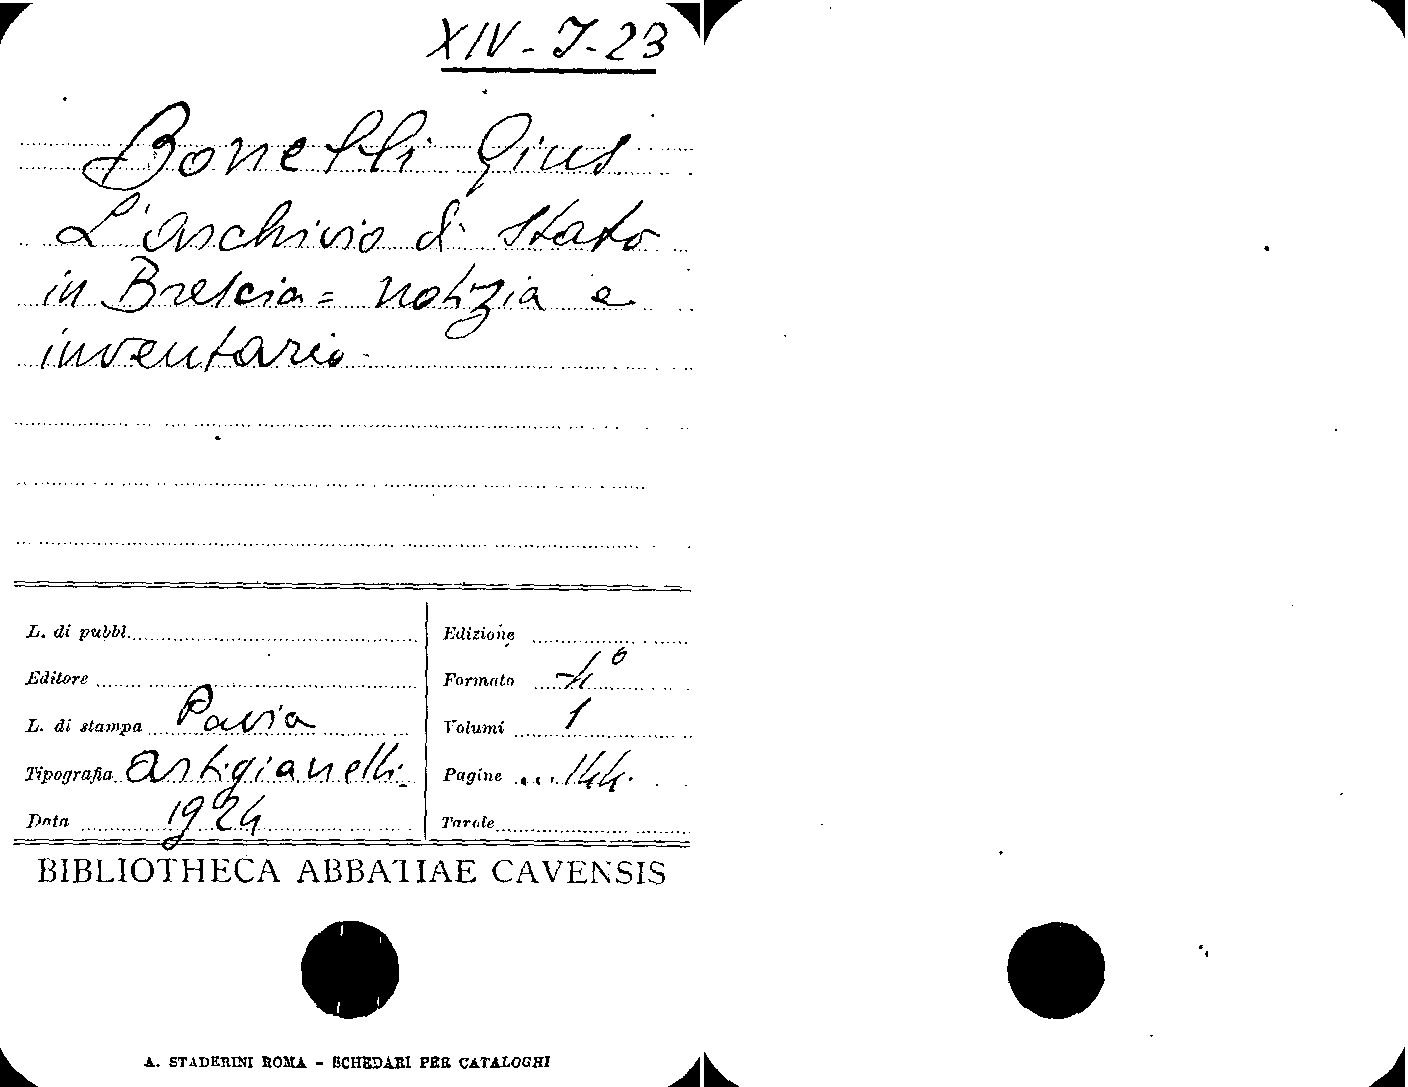 XIV-J-23
Bonelli Gius
L'archivio di Stato
in Brescia = notizia e
inventario.
L. di pubbl.
Editore
L. di stampa Pavia
Tipografia Artigianelli
Data 1924
Edizione
Formato 4°
Volumi 1
Pagine 144.
Tavole
BIBLIOTHECA ABBATIAE CAVENSIS
A. STADERINI ROMA - SCHEDARI PER CATALOGHI